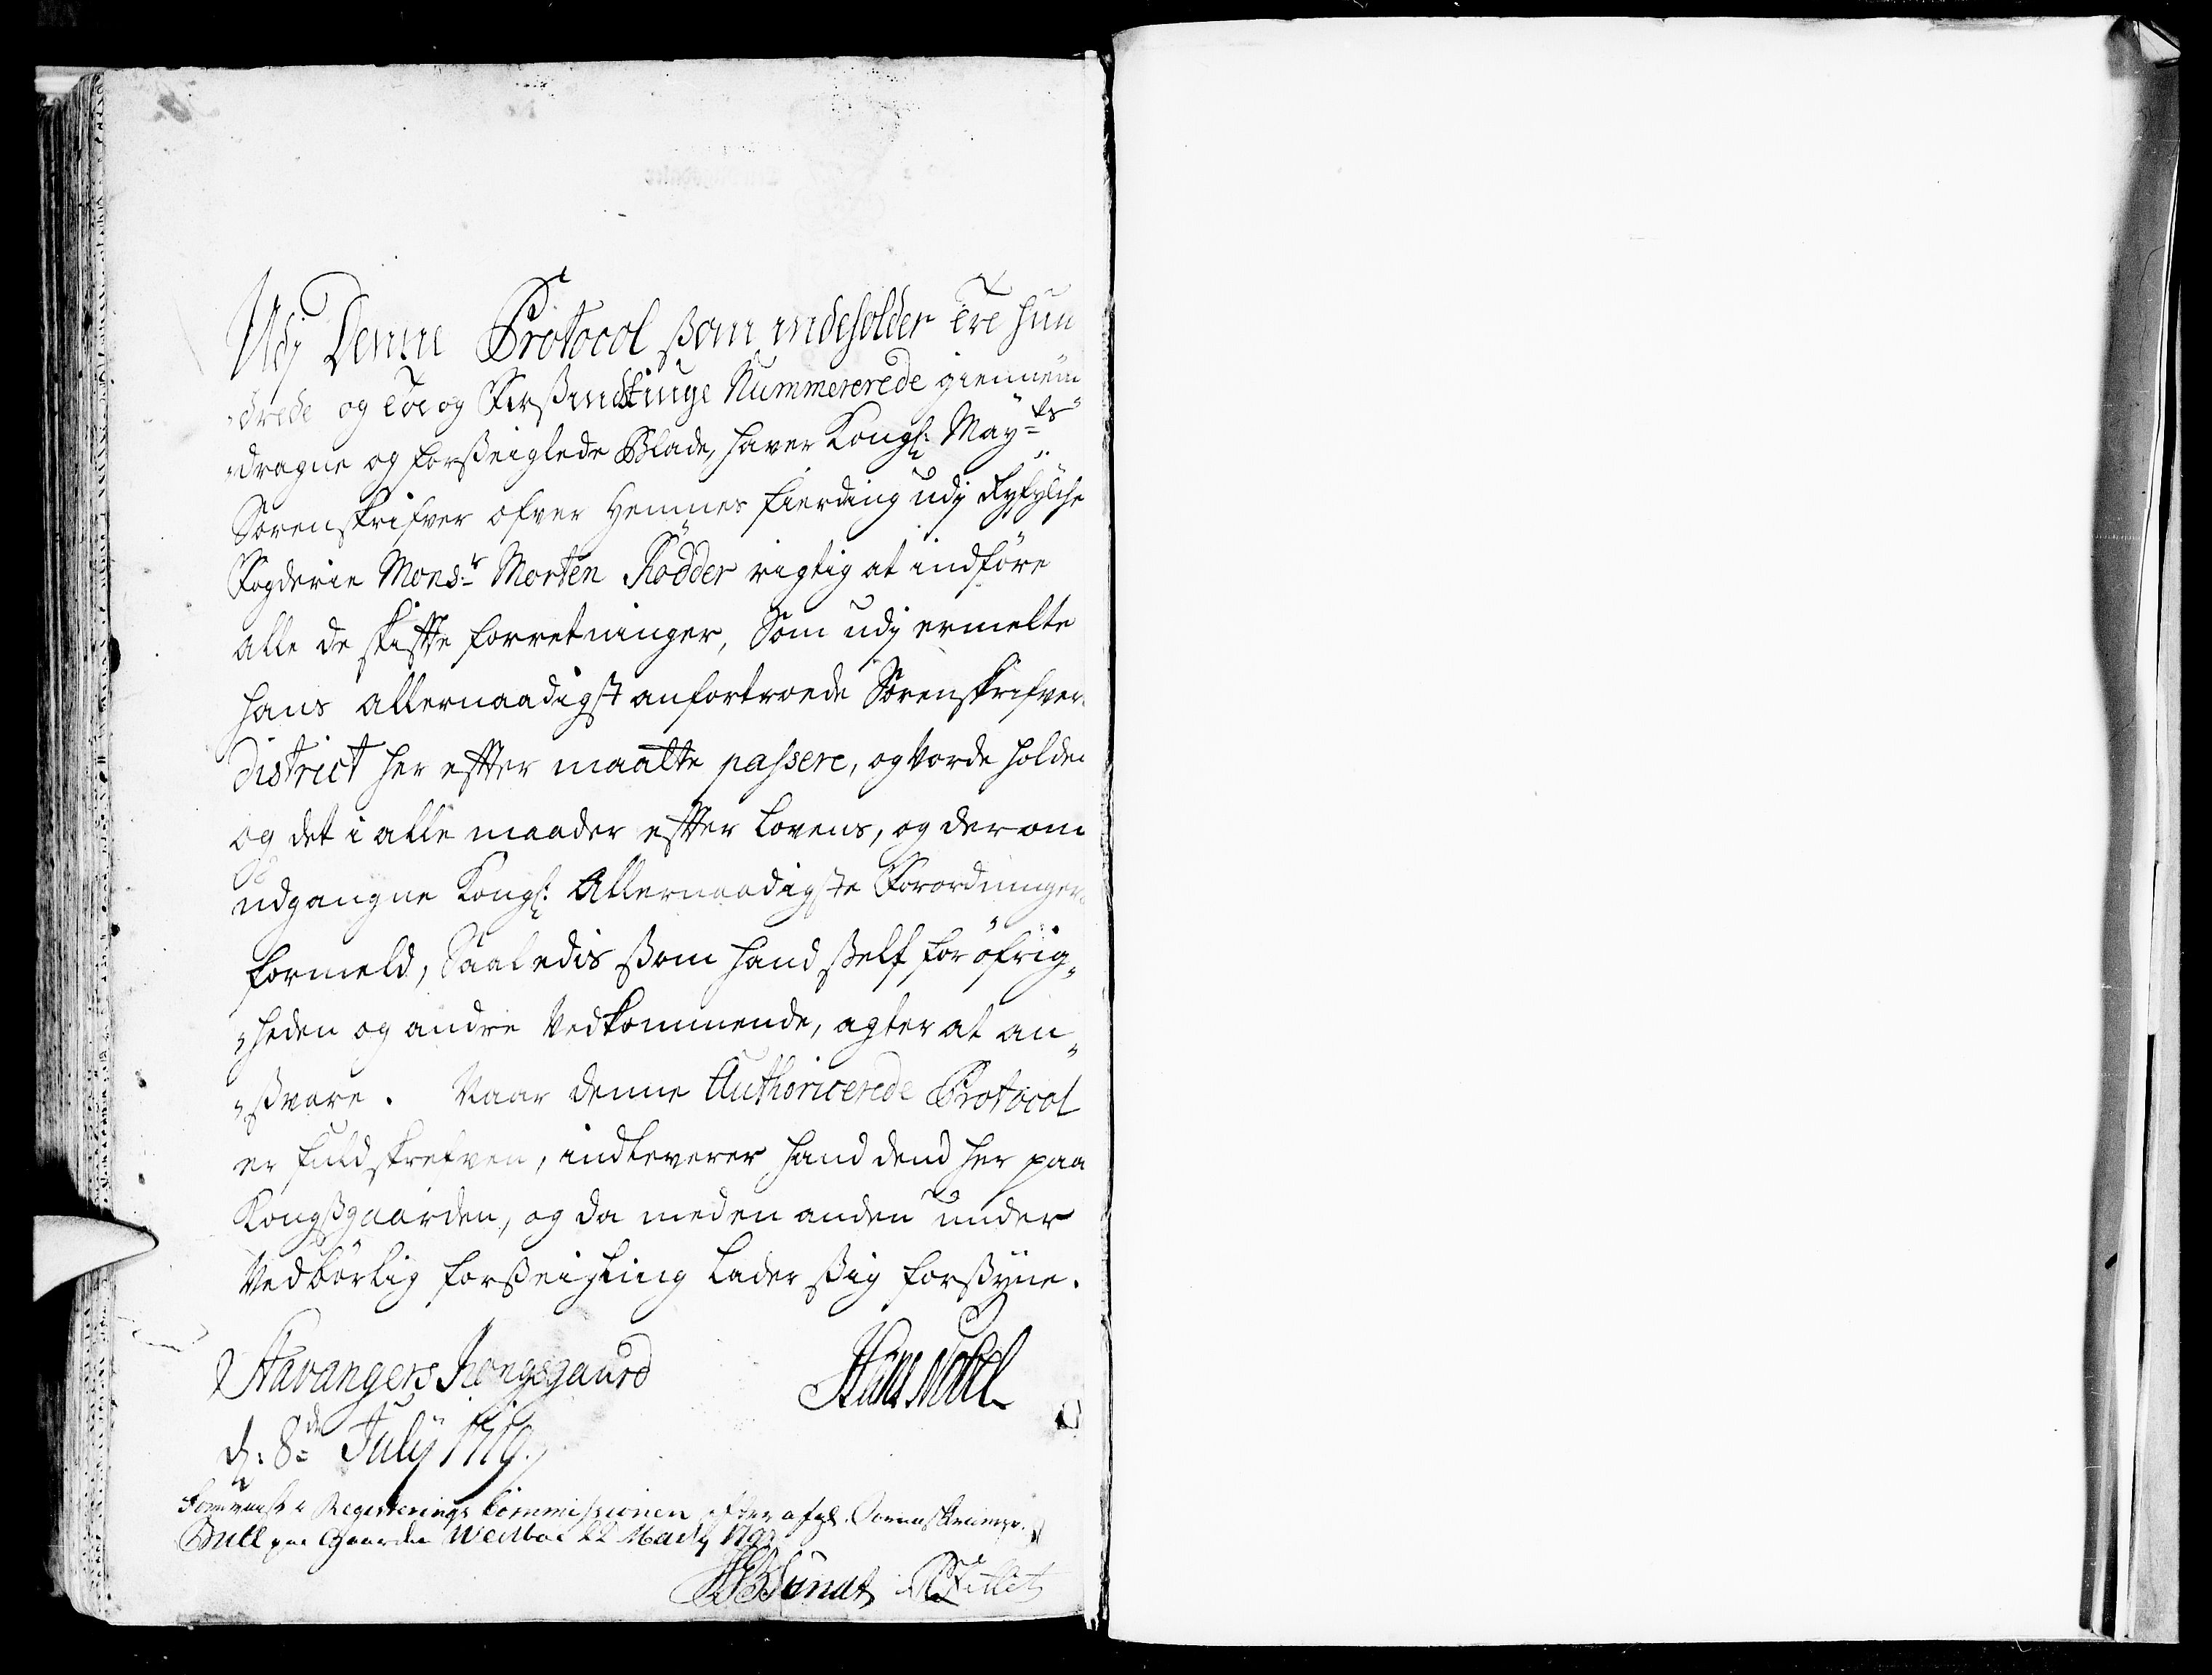 Udj Denne Protocol ßom indeholder Tre hun
drede og Toe og Firßindstiuge Nummererede giennem
dragne og forßeiglede Blade, haver Kongl: Mayts
Sorenskrifver ofver Hemnes fierding udj Ryfylche
Fogderie Monsr Morten Rödder rigtig at indføre
alle de skiffte forretninger, Som udj ermelte
hans allernaadigst anfortroede Sorenskrifver
District her effter maatte passere, og Vorde holden
og det i alle maader effter Lovens, og derom
udgangne Kongl: Allernaadigste Forordninger
formeld, Saaledis ßom hand ßelf for öfrig„
„heden og andre Vedkommende, agter at an„
„ßvare. Naar denne Authoricerede Protocol
er fuldskrefven, indleverer hand dend her paa
Kongßgaarden, og da med en anden under
Vedbørlig forßeigling lader ßig forßyne.
Stavangers Kongsgaard Hans Nobel
d: 8de July 1719.
Registerings Commissionen efter afgl. Sorenskriver
Bull paa Gaarden 22 Marty